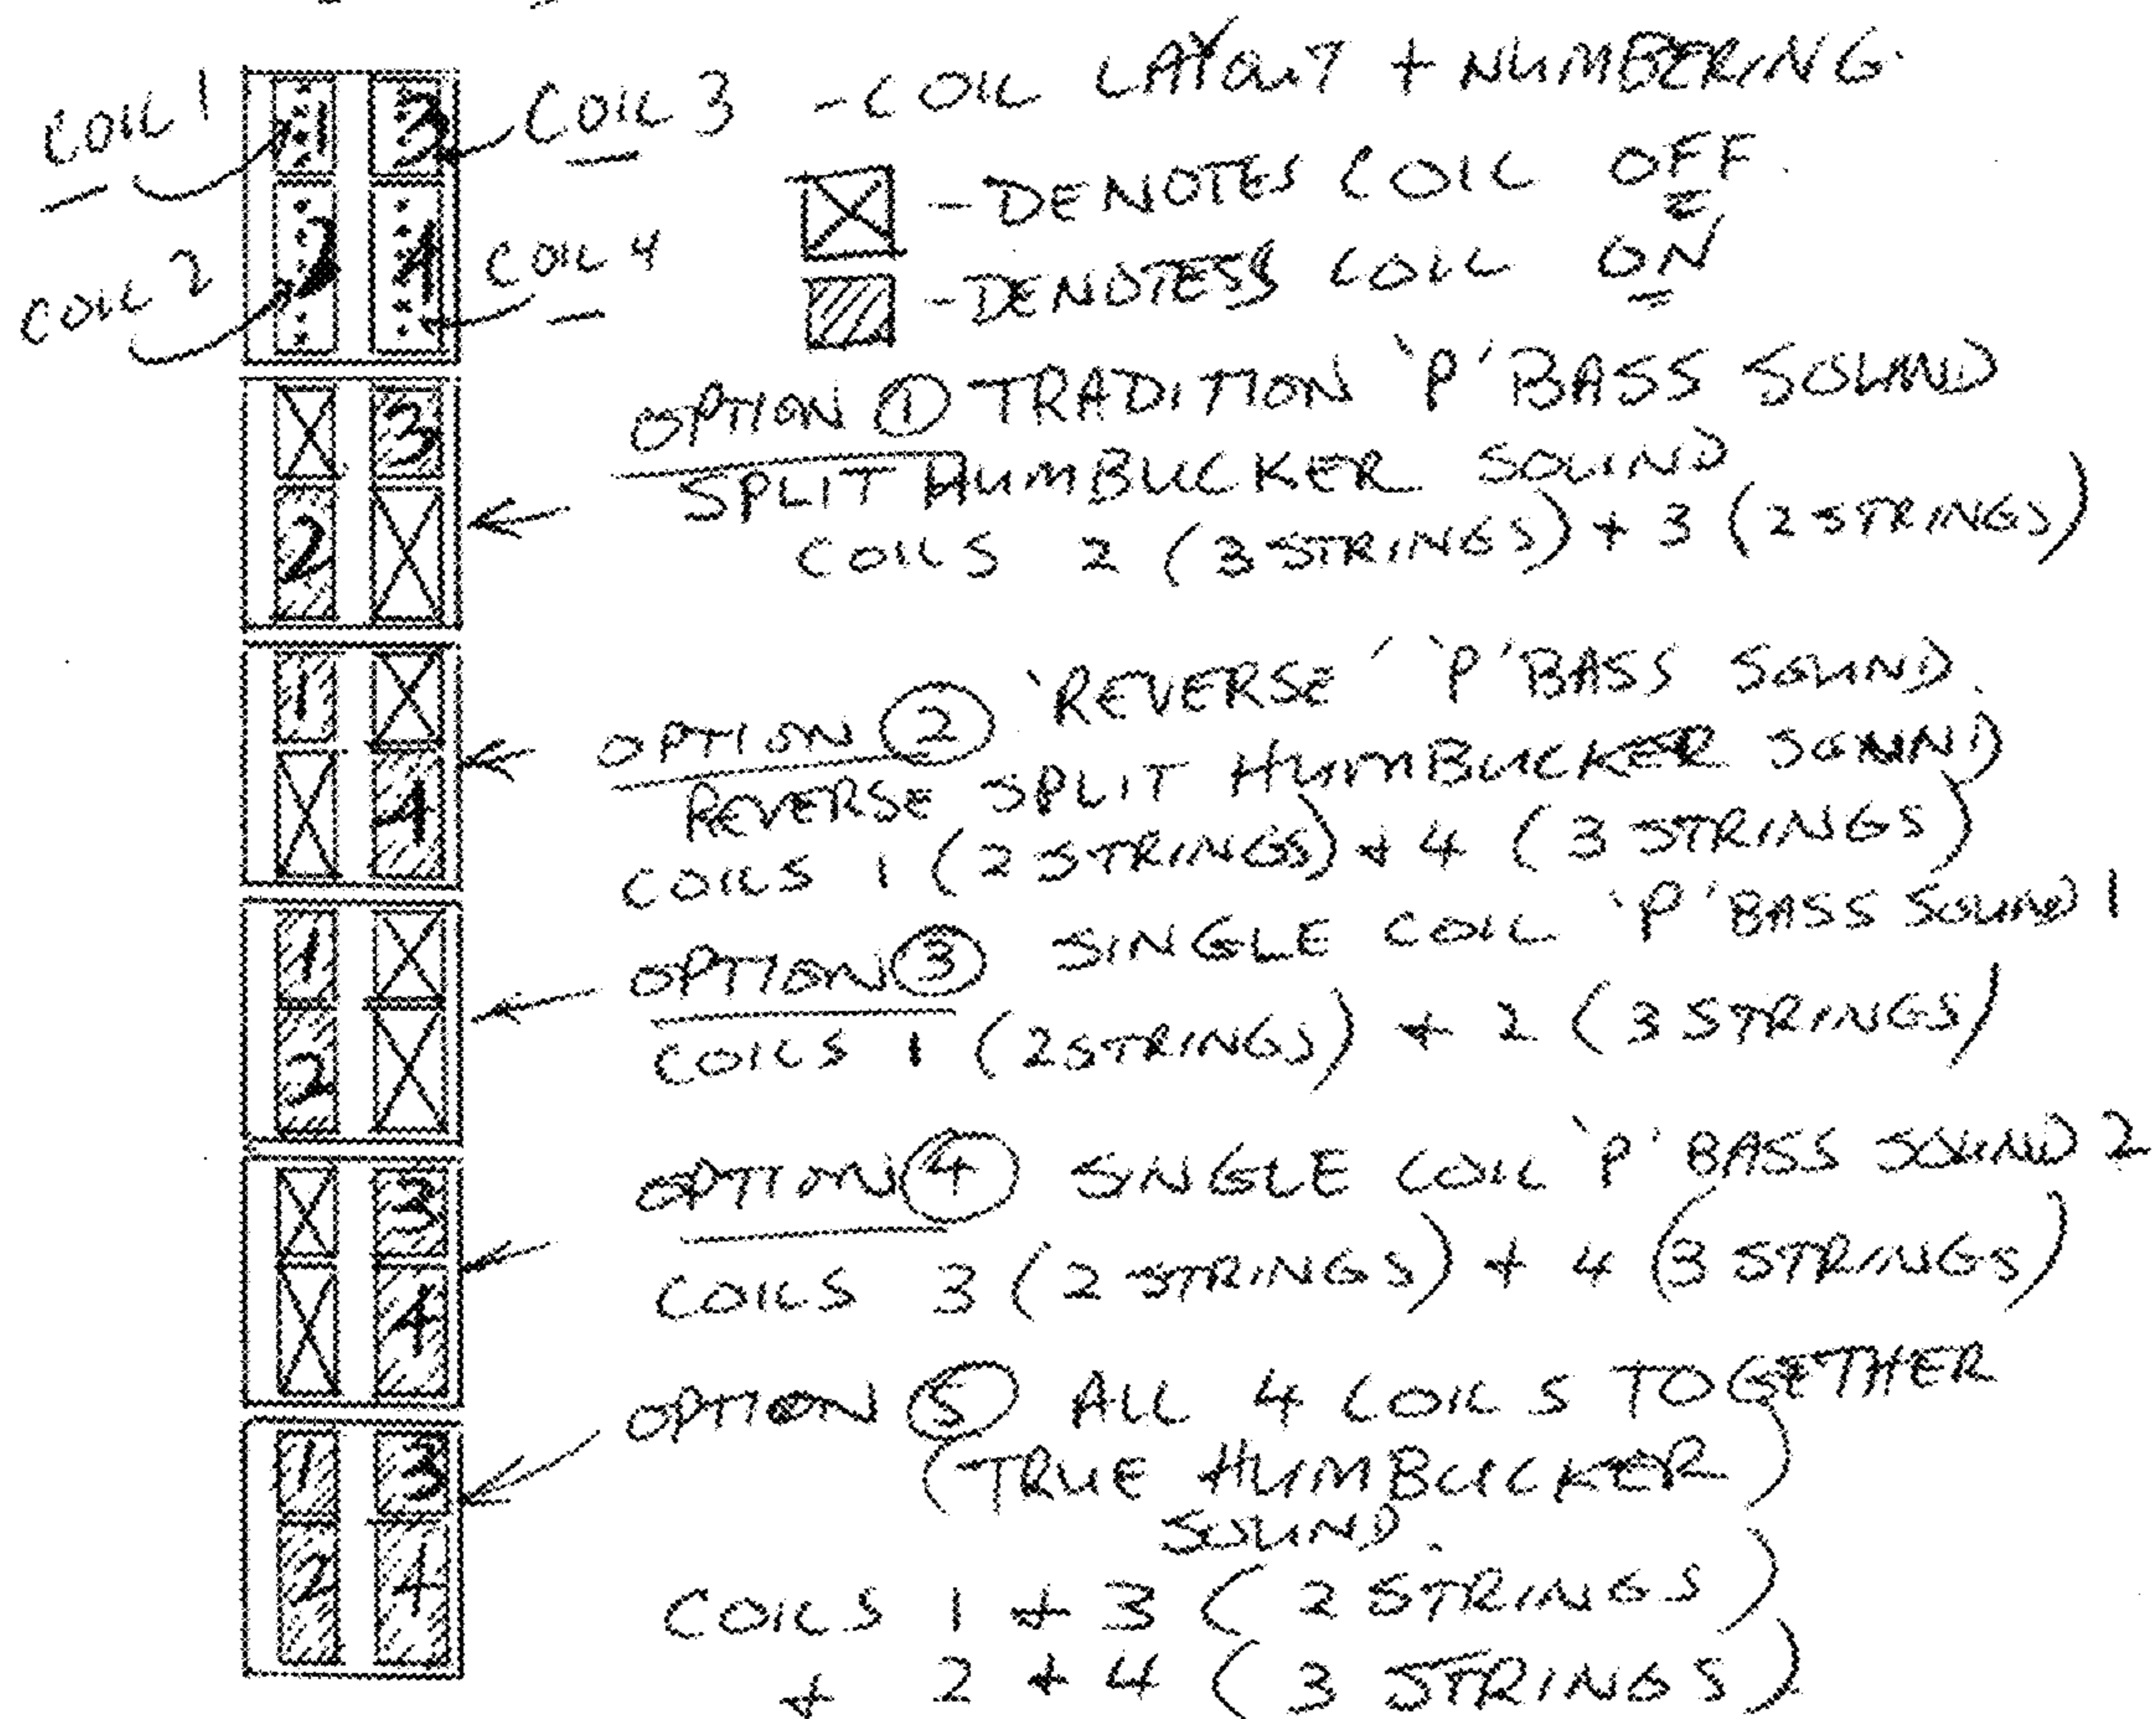 COIL 1
1 3
COIL 3 - COIL LAYOUT + NUMBERING.
- DENOTES COIL OFF.
COIL 2
2 4
COIL 4
- DENOTESS COIL ON
3
2
OPTION 1 TRADITION 'P' BASS SOUND
SPLIT HUMBUCKER SOUND
COILS 2 (3 STRINGS) + 3 (2 STRINGS)
1
4
OPTION 2 'REVERSE' 'P' BASS SOUND.
REVERSE SPLIT HUMBUCKER SOUND
COILS 1 (2 STRINGS) + 4 (3 STRINGS)
1
2
OPTION 3 SINGLE COIL 'P' BASS SOUND 1
COILS 1 (2 STRINGS) + 2 (3 STRINGS)
3
4
OPTION 4 SINGLE COIL 'P' BASS SOUND 2
COILS 3 (2 STRINGS) + 4 (3 STRINGS)
1 3
2 4
OPTION 5 ALL 4 COILS TOGETHER
(TRUE HUMBUCKER)
SOUND.
COILS 1 + 3 (2 STRINGS)
+ 2 + 4 (3 STRINGS)